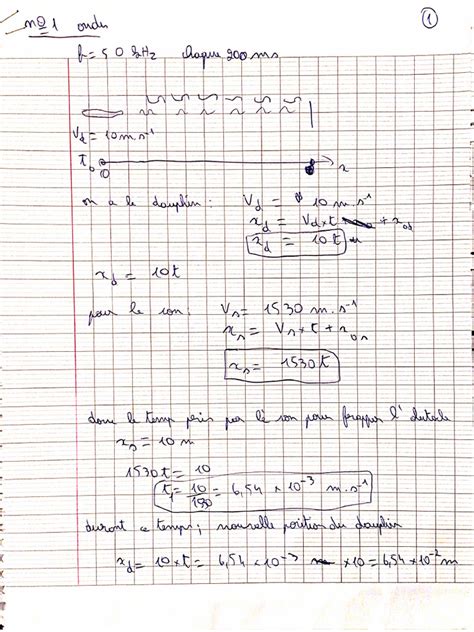 nº 1 ondes
①
f = 50 kHz chaque 200 ms
Vd = 10 m.s⁻¹
t₀
0
x
on a le dauphin : Vd = 10 m.s⁻¹
xd = Vd × t + x₀d
xd = 10t
xd = 10t
pour le son : Vs = 1530 m.s⁻¹
xs = Vs × t + x₀s
xs = 1530t
donc le temp pris par le son pour frapper l'
xs = 10 m
1530t = 10
t₁ = 10/1530 = 6,54 × 10⁻³ m.s⁻¹
durant ce temps ; nouvelle position du dauphin
xd = 10 × t = 6,54 × 10⁻³ × 10 = 6,54 × 10⁻² m